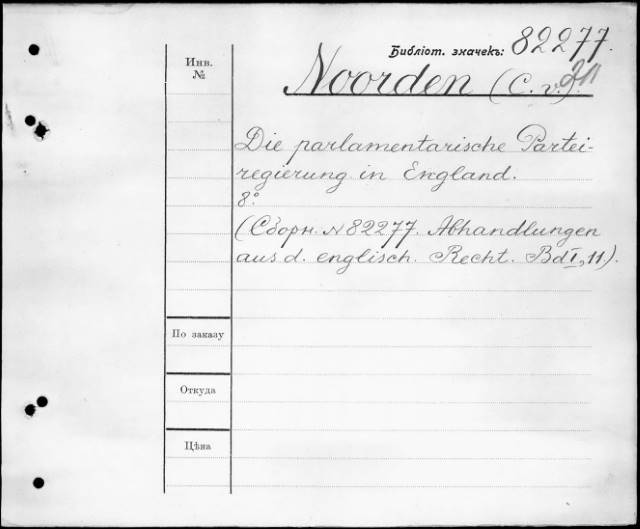 Библіот. значекъ: 82277.
Инв.
№
Noorden (C. v.)
Die parlamentarische Partei-
regierung in England.
8°.
(Сборн. N 82277. Abhandlungen
aus d. englisch. Recht. Bd I, 11).
По заказу
Откуда
Цѣна